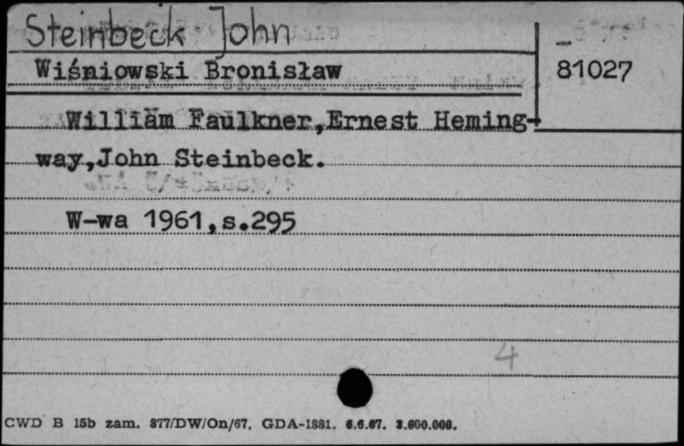 Steinbeck John
Wiśniowski Bronisław
81027
William Faulkner,Ernest Heming-
way,John Steinbeck.
W-wa 1961,s.295
4
CWD B 15b zam. 877/DW/On/67. GDA-1881. 6.6.67. 2.600.000.